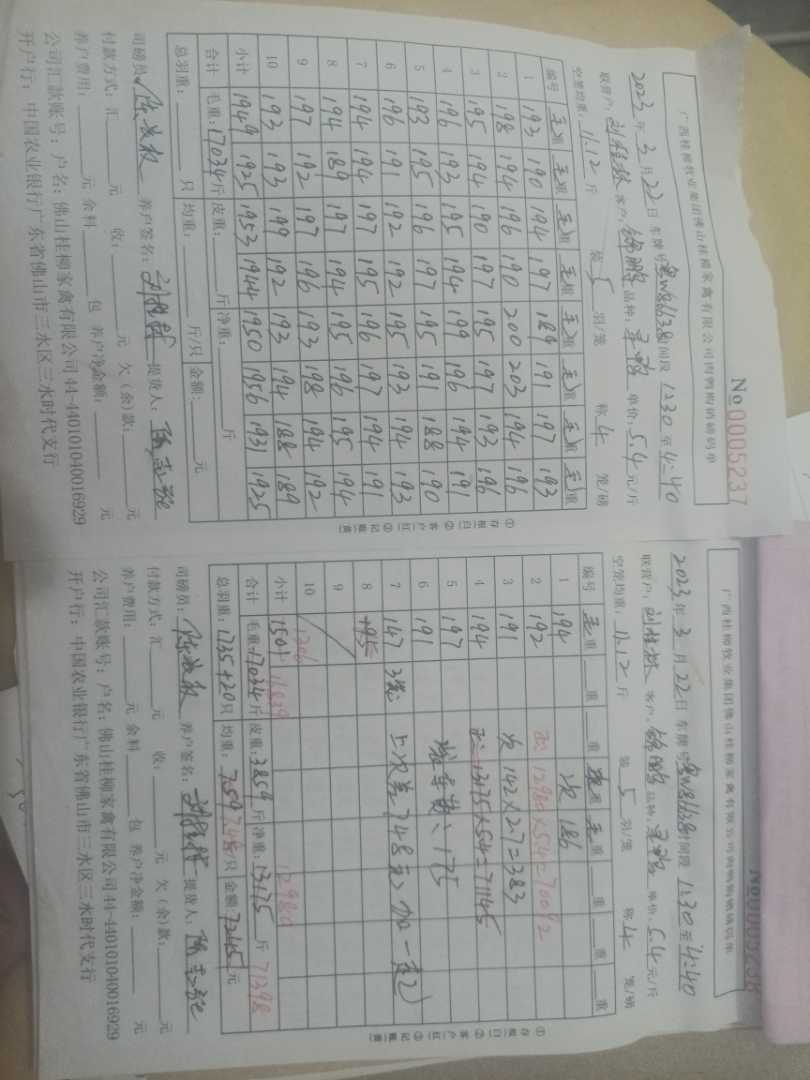 广西桂柳牧业集团佛山桂柳家禽有限公司肉鸭购销磅码单
No 0005237
2023年3月22日 车牌号 时间段 1:30至4:40
联营户: 客户: 品种: 单价:5.4元/斤
空笼均重:11.12斤 装5羽/笼 称4笼/磅
编号 毛重 毛重 毛重 毛重 毛重 毛重 毛重 毛重
1 193 190 194 197 189 191 197 193
2 198 194 196 190 200 203 194 196
3 195 194 190 197 195 197 193 196
4 196 193 195 194 199 196 194 191
5 193 195 196 197 195 191 188 190
6 196 191 192 192 195 193 194 193
7 194 194 197 195 196 197 194 191
8 194 189 197 194 195 196 195 194
9 197 192 197 196 193 198 194 192
10 193 193 199 192 193 194 188 189
小计 1949 1925 1953 1944 1950 1956 1931 1925
合计 毛重:17034斤 皮重: 斤 净重: 斤
总羽重: 只 均重: 斤/只 金额: 元
司磅员: 养户签名: 提货人:
付款方式:汇 元 收: 元 欠(余)款: 元
养户费用: 元 余料 包 养户净金额: 元
公司汇款账号:户名:佛山桂柳家禽有限公司 44-440101040016929
开户行:中国农业银行广东省佛山市三水区三水时代支行
①存根(白) ②客户(红) ③记账(黄)
广西桂柳牧业集团佛山桂柳家禽有限公司肉鸭购销磅码单
2023年3月22日 车牌号 时间段 1:30至4:40
联营户: 客户: 品种: 单价:5.4元/斤
空笼均重:11.12斤 装5羽/笼 称4笼/磅
编号 毛重 重 重 重 毛重 重 重 重
1 194 次 186
2 192 12980×5.4=70092
3 191 次 142×2.7=383
4 194 13175×5.4=71145
5 197 175
6 191
7 147 3笼 上次差748元
8 195
9
10 1306
小计 1501 16839 12980
合计 毛重:17034斤 皮重:3859斤 净重:13175斤 71398
总羽重:1735+20只 均重:7.59 7.48斤/只 金额:72145元
司磅员: 养户签名: 提货人:
付款方式:汇 元 收: 元 欠(余)款: 元
养户费用: 元 余料 包 养户净金额: 元
公司汇款账号:户名:佛山桂柳家禽有限公司 44-440101040016929
开户行:中国农业银行广东省佛山市三水区三水时代支行
①存根(白) ②客户(红) ③记账(黄)